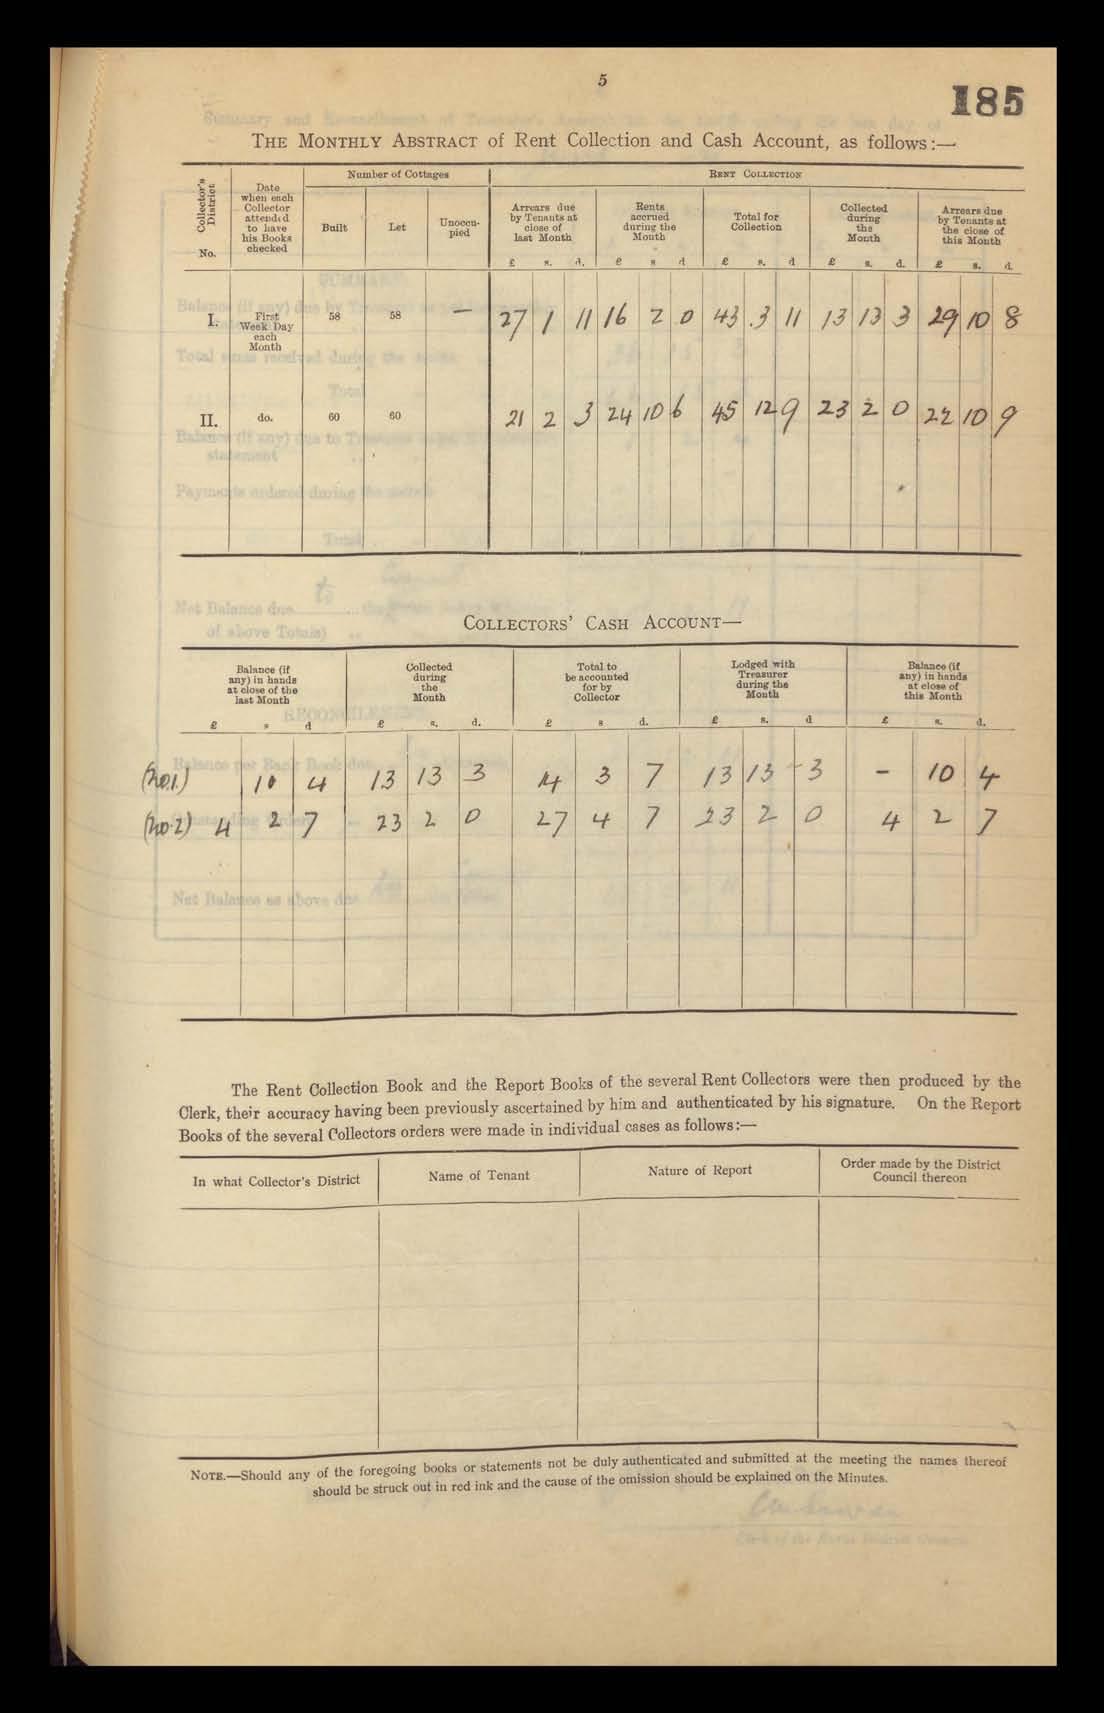 5
185
THE MONTHLY ABSTRACT of Rent Collection and Cash Account, as follows:—
Collector's District No.
Date when each Collector attended to have his Books checked
Number of Cottages
Built
Let
Unoccupied
RENT COLLECTION
Arrears due by Tenants at close of last Month
Rents accrued during the Month
Total for Collection
Collected during the Month
Arrears due by Tenants at the close of this Month
£ s. d. £ s d £ s. d £ s. d. £ s. d.
I. First Week Day each Month 58 58 — 27 1 11 16 2 0 43 3 11 13 13 3 29 10 8
II. do. 60 60 21 2 3 24 10 6 45 12 9 23 2 0 22 10 9
COLLECTORS' CASH ACCOUNT—
Balance (if any) in hands at close of the last Month
Collected during the Month
Total to be accounted for by Collector
Lodged with Treasurer during the Month
Balance (if any) in hands at close of this Month
£ s d £ s. d. £ s d. £ s. d £ s. d.
(No.1.) 10 4 13 13 3 14 3 7 13 13 3 - 10 4
(No.2) 4 2 7 23 2 0 27 4 7 23 2 0 4 2 7
The Rent Collection Book and the Report Books of the several Rent Collectors were then produced by the
Clerk, their accuracy having been previously ascertained by him and authenticated by his signature. On the Report
Books of the several Collectors orders were made in individual cases as follows:—
In what Collector's District
Name of Tenant
Nature of Report
Order made by the District
Council thereon
NOTE.—Should any of the foregoing books or statements not be duly authenticated and submitted at the meeting the names thereof
should be struck out in red ink and the cause of the omission should be explained on the Minutes.